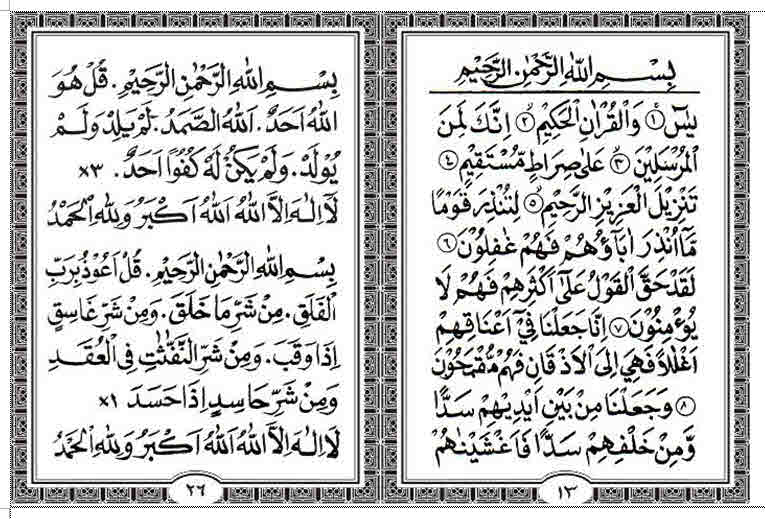 بِسْمِ اللهِ الرَّحْمٰنِ الرَّحِيْمِ
يٰسٓ ﴿١﴾ وَالْقُرْاٰنِ الْحَكِيْمِ ﴿٢﴾ اِنَّكَ لَمِنَ
الْمُرْسَلِيْنَ ﴿٣﴾ عَلٰى صِرَاطٍ مُّسْتَقِيْمٍ ﴿٤﴾
تَنْزِيْلَ الْعَزِيْزِ الرَّحِيْمِ ﴿٥﴾ لِتُنْذِرَ قَوْمًا
مَّآ اُنْذِرَ اٰبَآؤُهُمْ فَهُمْ غٰفِلُوْنَ ﴿٦﴾
لَقَدْ حَقَّ الْقَوْلُ عَلٰٓى اَكْثَرِهِمْ فَهُمْ لَا
يُؤْمِنُوْنَ ﴿٧﴾ اِنَّا جَعَلْنَا فِيْٓ اَعْنَاقِهِمْ
اَغْلٰلًا فَهِيَ اِلَى الْاَذْقَانِ فَهُمْ مُّقْمَحُوْنَ
﴿٨﴾ وَجَعَلْنَا مِنْ بَيْنِ اَيْدِيْهِمْ سَدًّا
وَّمِنْ خَلْفِهِمْ سَدًّا فَاَغْشَيْنٰهُمْ
١٣
بِسْمِ اللهِ الرَّحْمٰنِ الرَّحِيْمِ. قُلْ هُوَ
اللهُ اَحَدٌ. اَللهُ الصَّمَدُ. لَمْ يَلِدْ وَلَمْ
يُوْلَدْ. وَلَمْ يَكُنْ لَهُ كُفُوًا اَحَدٌ. ×٣
لَآ اِلٰهَ اِلَّا اللهُ اَللهُ اَكْبَرُ وَلِلّٰهِ الْحَمْدُ
بِسْمِ اللهِ الرَّحْمٰنِ الرَّحِيْمِ. قُلْ اَعُوْذُ بِرَبِّ
الْفَلَقِ. مِنْ شَرِّ مَا خَلَقَ. وَمِنْ شَرِّ غَاسِقٍ
اِذَا وَقَبَ. وَمِنْ شَرِّ النَّفّٰثٰتِ فِى الْعُقَدِ
وَمِنْ شَرِّ حَاسِدٍ اِذَا حَسَدَ ×١
لَآ اِلٰهَ اِلَّا اللهُ اَللهُ اَكْبَرُ وَلِلّٰهِ الْحَمْدُ
٢٦